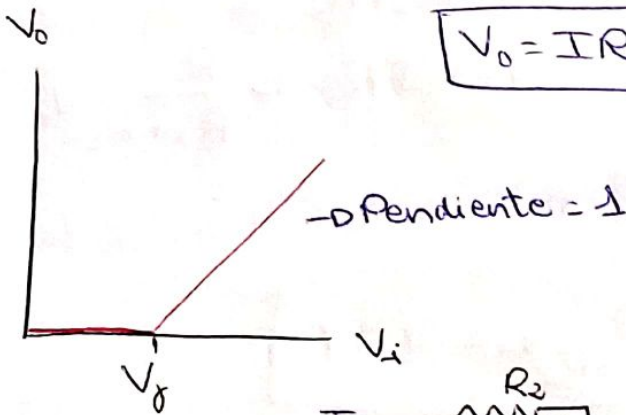 V₀
V₀ = IR
→ Pendiente = 1
Vᵢ
Vγ
R₂